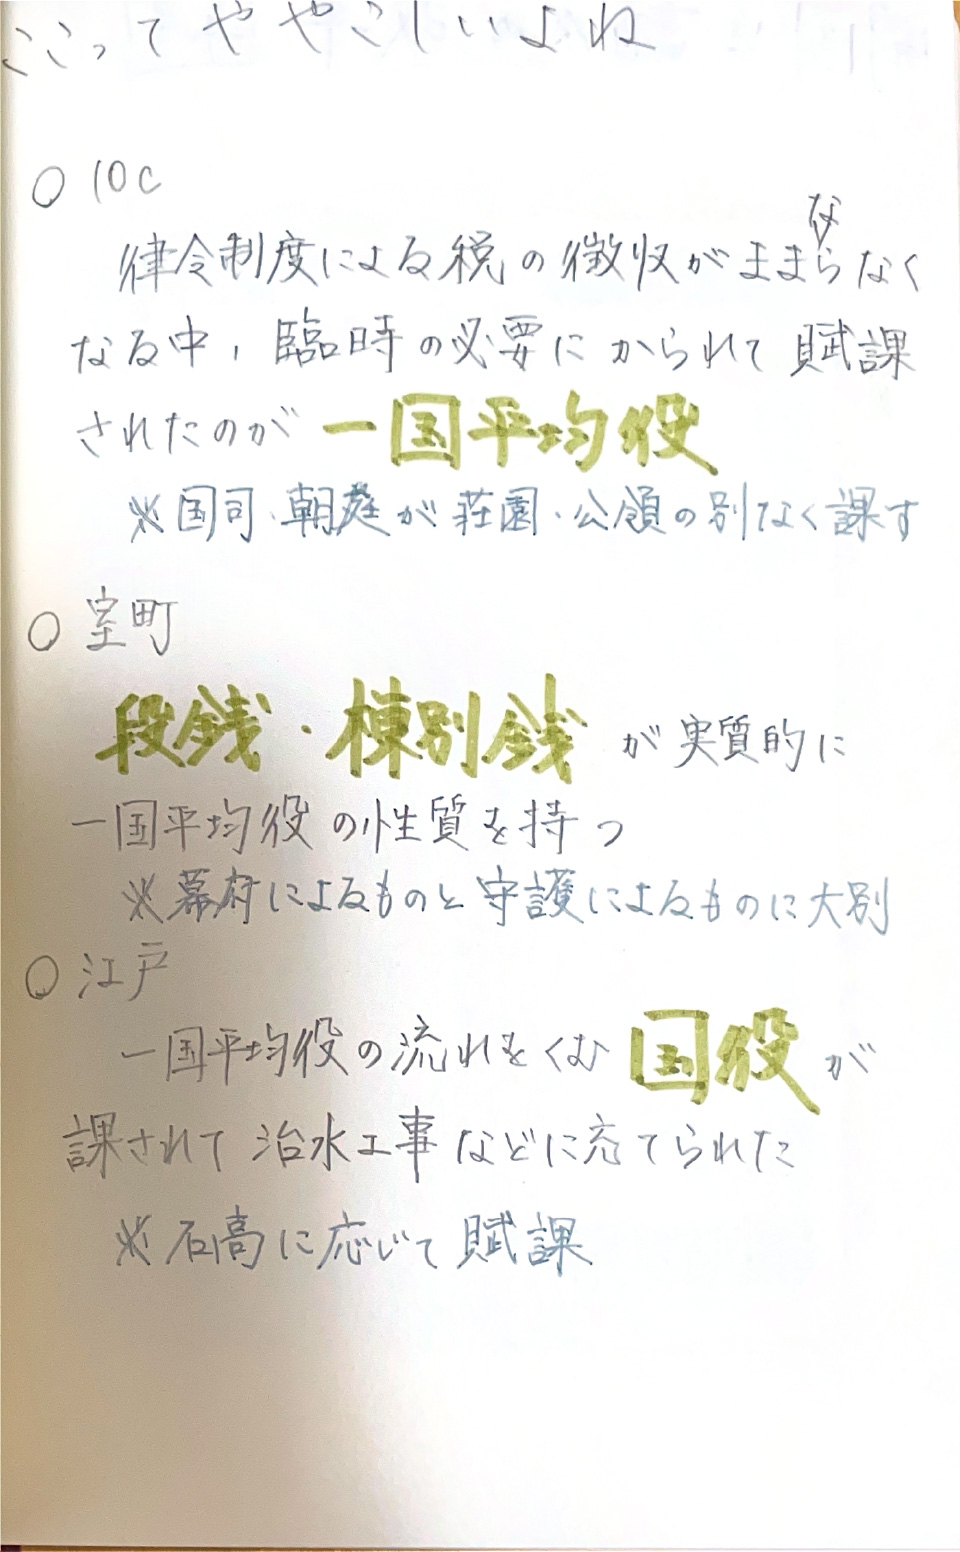 ここってややこしいよね
○ 10c
律令制度による税の徴収がままならなく
なる中，臨時の必要にかられて賦課
されたのが一国平均役
※国司・朝庭が荘園・公領の別なく課す
○ 室町
段銭・棟別銭が実質的に
一国平均役の性質を持つ
※幕府によるものと守護によるものに大別
○ 江戸
一国平均役の流れをくむ国役が
課されて治水工事などに充てられた
※石高に応じて賦課